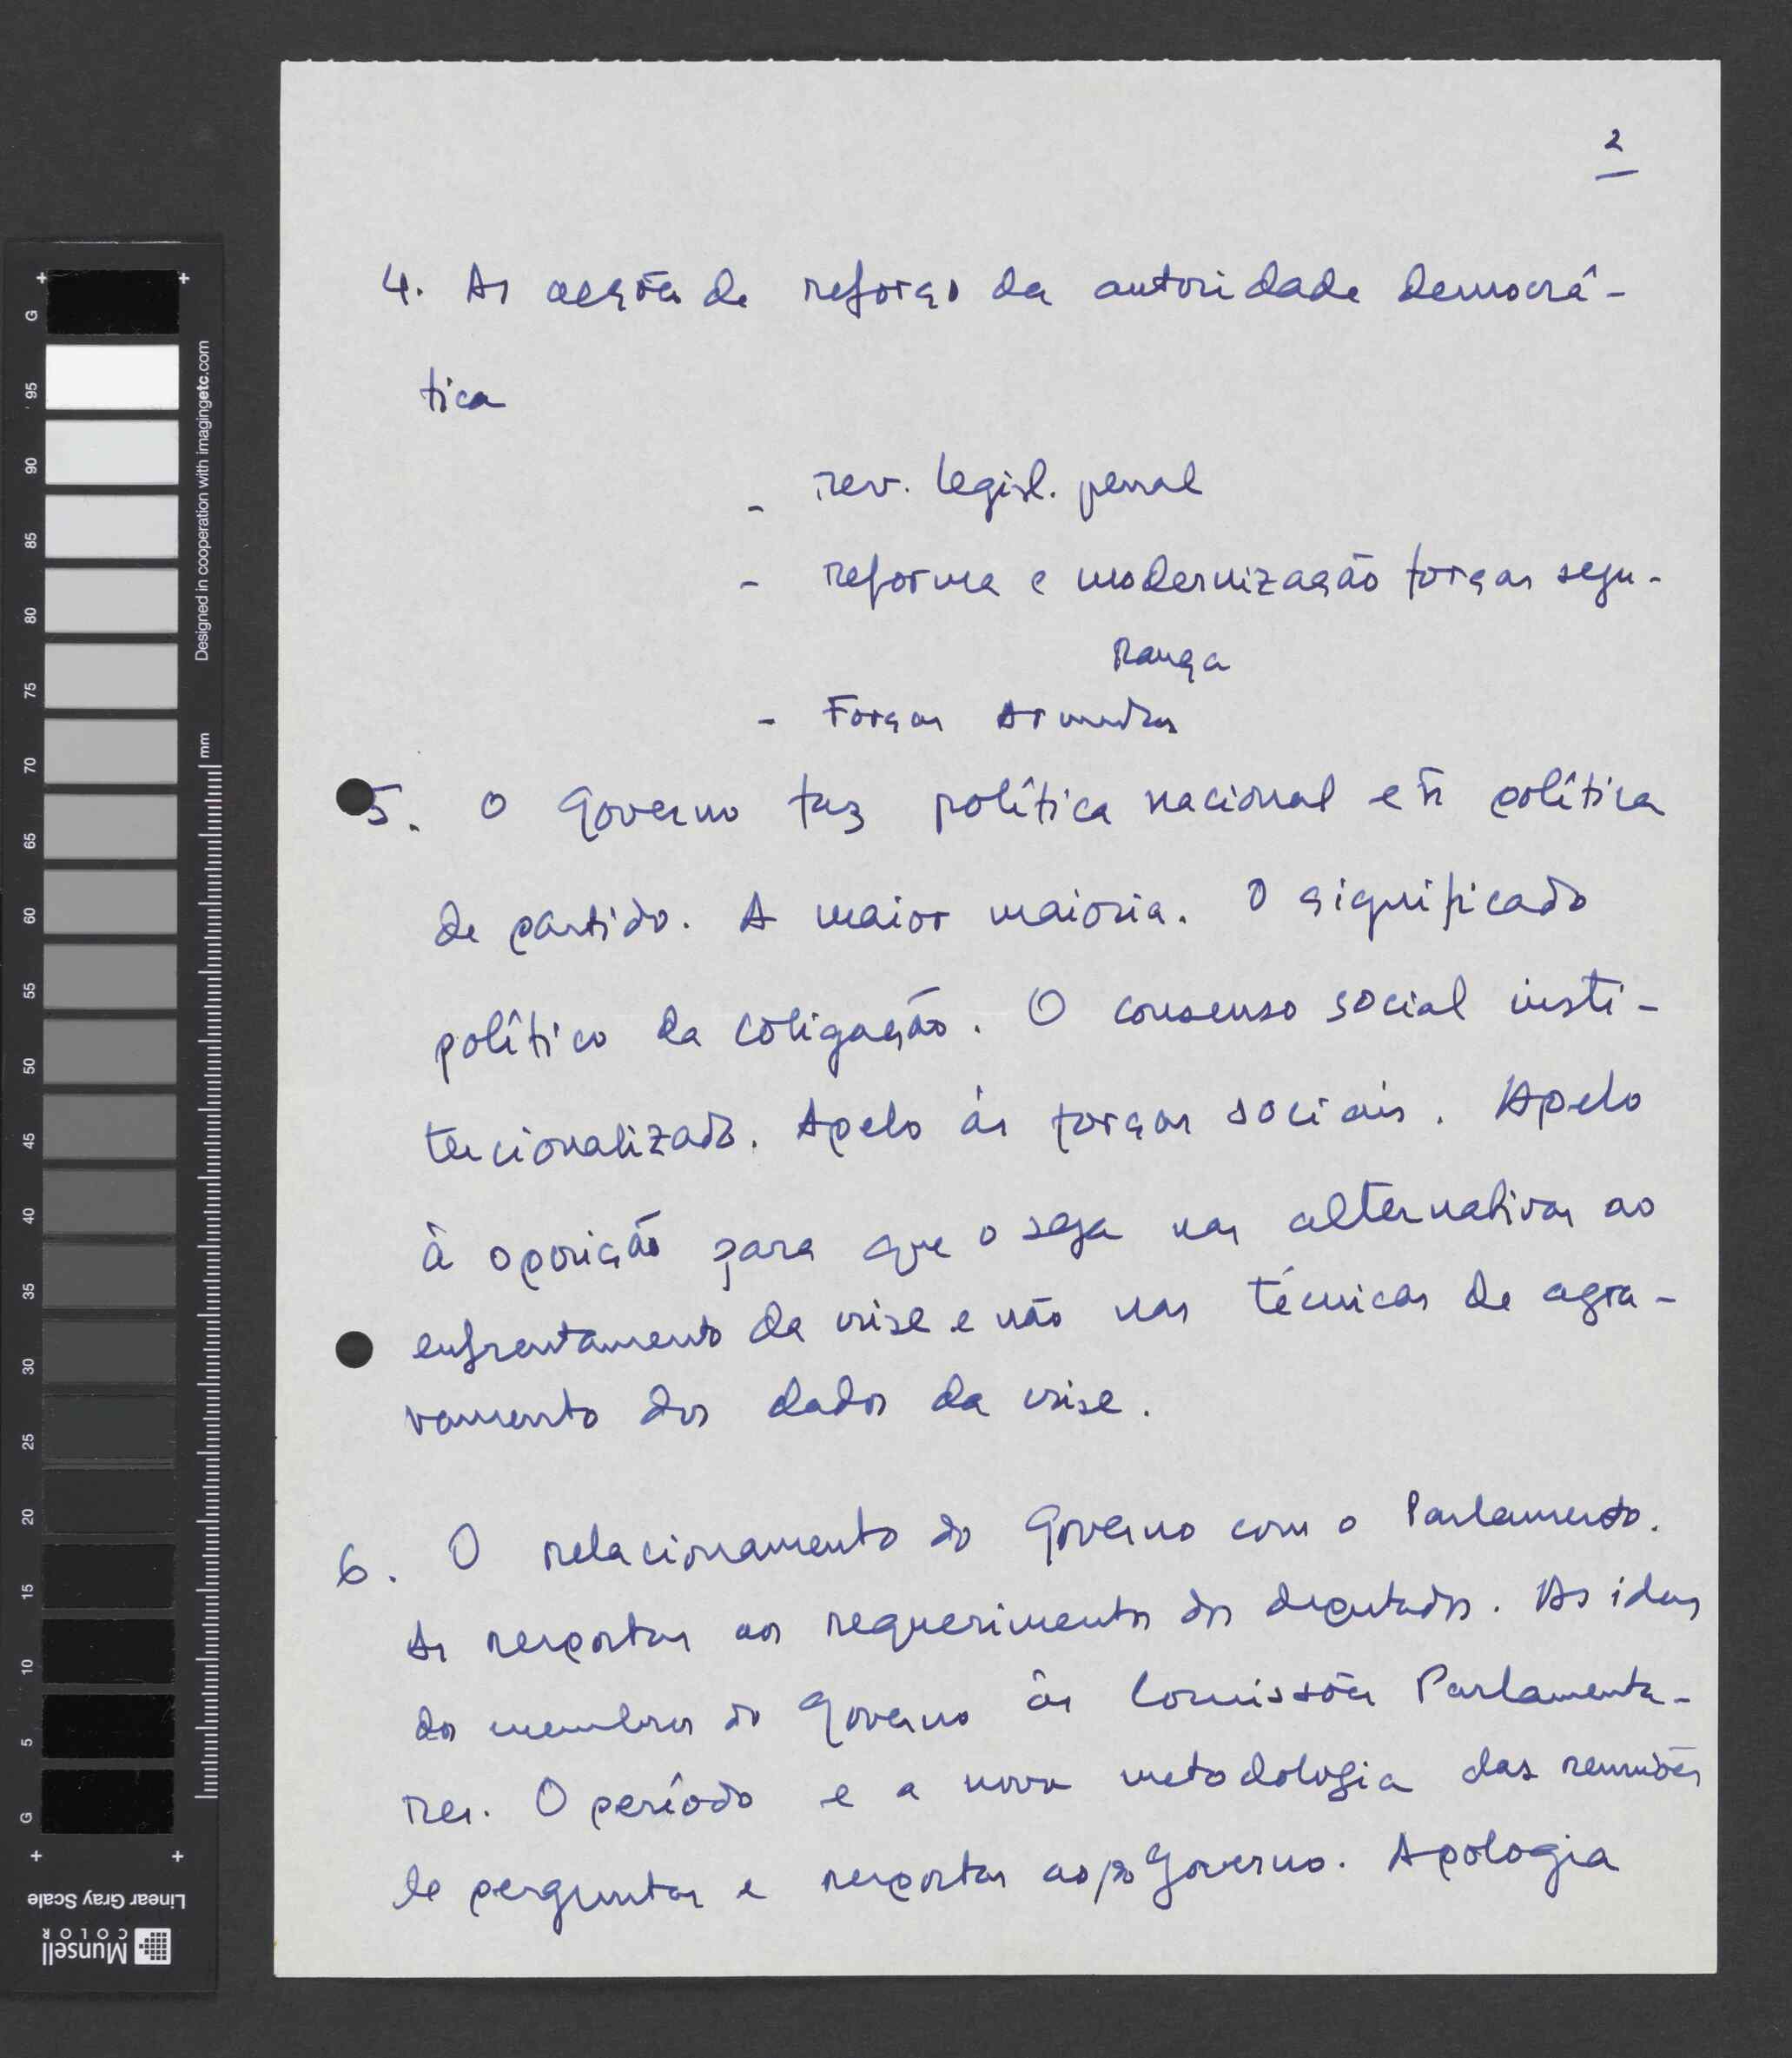 2
4. As acções de reforço da autoridade democrá-
tica
- rev. legisl. penal
- reforma e modernização forças segu-
rança
- Forças Armadas
5. O Governo faz política nacional e ñ política
de partido. A maior maioria. O significado
político da coligação. O consenso social insti-
tucionalizado. Apelo às forças sociais. Apelo
à oposição para que o seja nas alternativas ao
enfrentamento da crise e não nas técnicas de agra-
vamento dos dados da crise.
6. O relacionamento do Governo com o Parlamento.
As respostas aos requerimentos dos deputados. As idas
dos membros do Governo às Comissões Parlamenta-
res. O período e a nova metodologia das reuniões
de perguntas e respostas ao/do Governo. Apologia
G 95 90 85 80 75 70 65 60 55 50 45 40 35 30 25 20 15 10 5 G
Designed in cooperation with imagingetc.com
mm
Linear Gray Scale
Munsell
COLOR